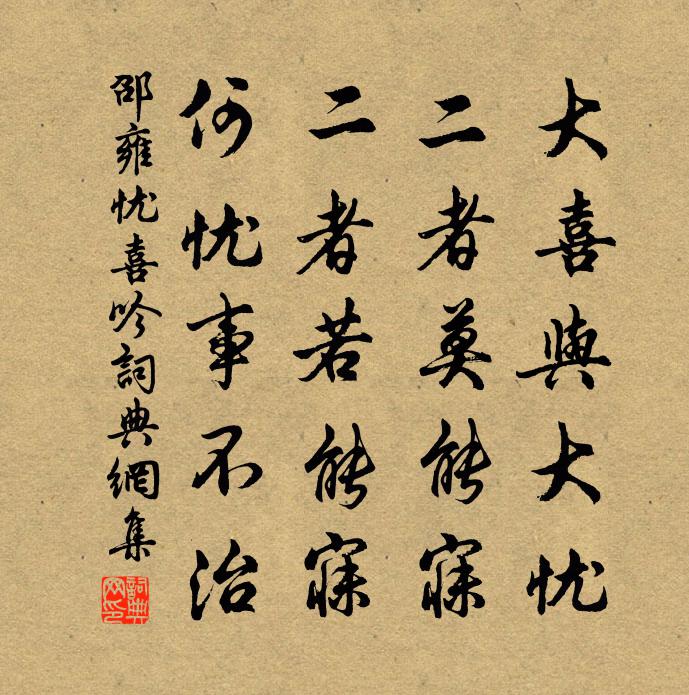 大喜與大忧
二者莫能寐
二者若能寐
何忧事不治
邵雍忧喜吟詞典網集
詞典网印